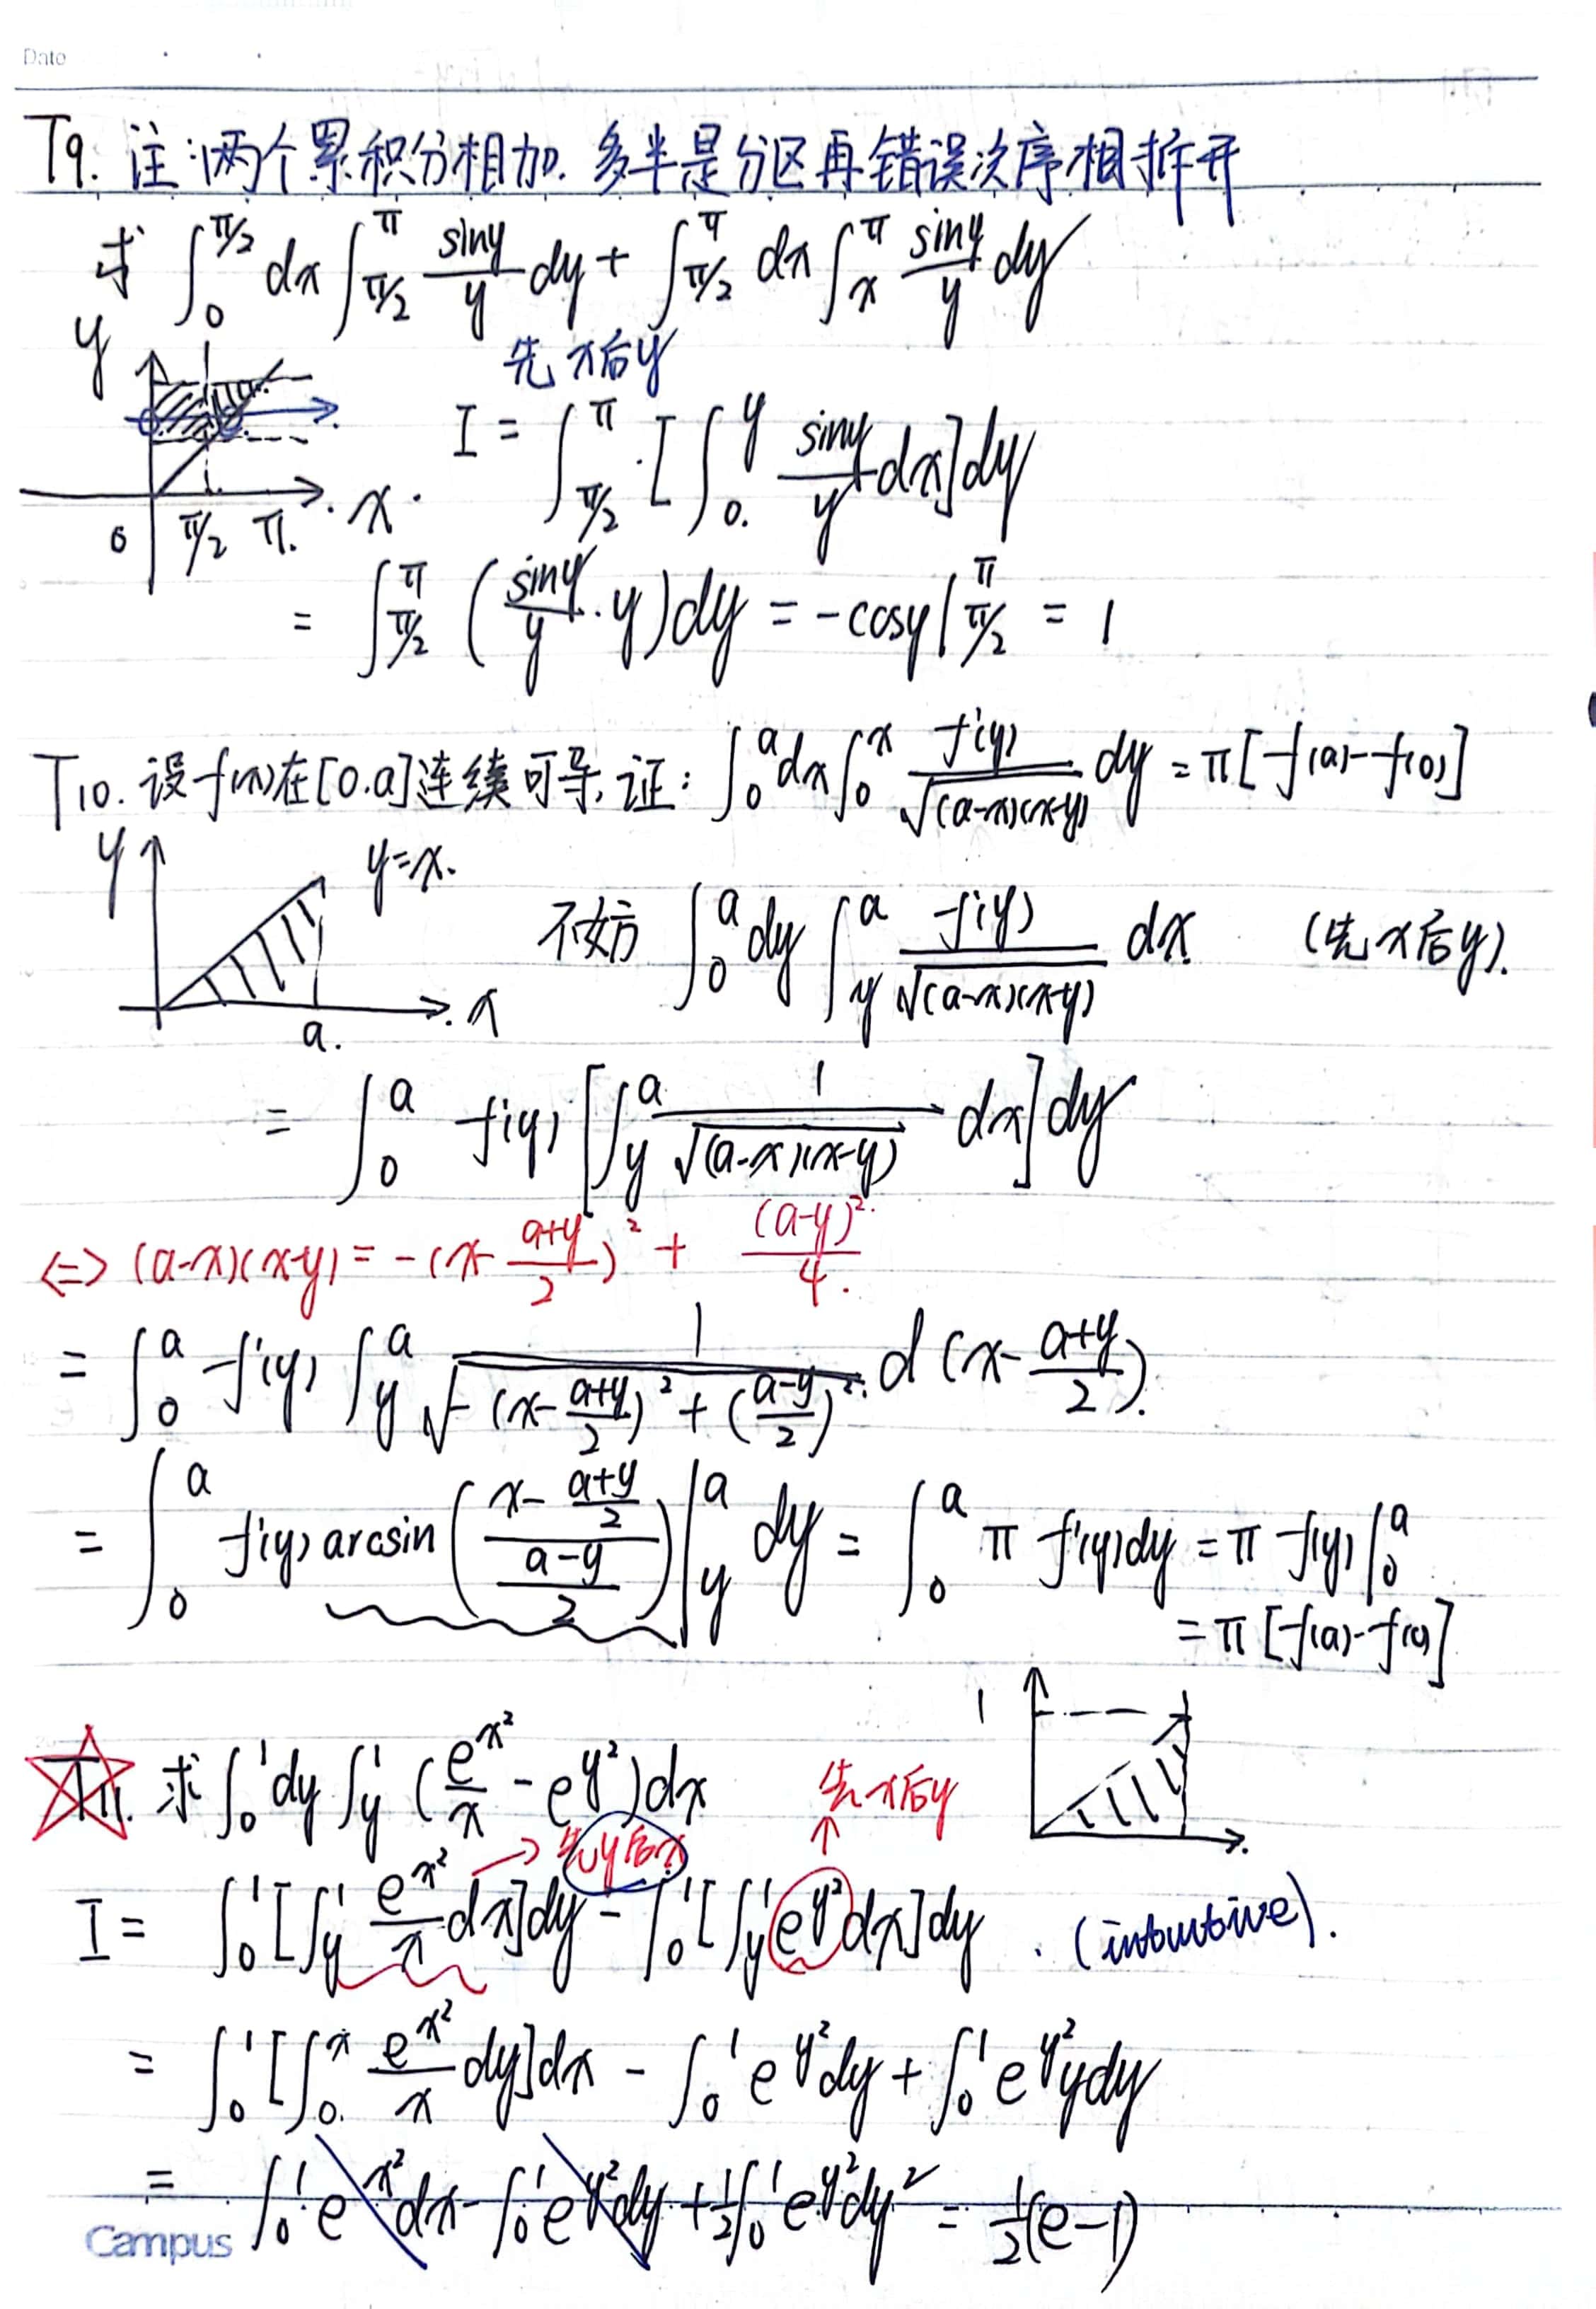 Date
T9. 注:两个累积分相加. 多半是分区再错误次序相拆开
求 ∫_0^{π/2} dx ∫_{π/2}^π \frac{siny}{y} dy + ∫_{π/2}^π dx ∫_x^π \frac{siny}{y} dy
y
先x后y
I = ∫_{π/2}^π [∫_0^y \frac{siny}{y} dx] dy
0 π/2 π. x.
= ∫_{π/2}^π (\frac{siny}{y}·y) dy = -cosy|_{π/2}^π = 1
T10. 设f(x)在[0.a]连续可导, 证: ∫_0^a dx ∫_0^x \frac{f'(y)}{\sqrt{(a-x)(x-y)}} dy = π[f(a)-f(0)]
y
y=x.
不妨 ∫_0^a dy ∫_y^a \frac{f'(y)}{\sqrt{(a-x)(x-y)}} dx (先x后y).
a. x
= ∫_0^a f'(y) [∫_y^a \frac{1}{\sqrt{(a-x)(x-y)}} dx] dy
<=> (a-x)(x-y) = -(x-\frac{a+y}{2})^2 + \frac{(a-y)^2}{4}.
= ∫_0^a f'(y) ∫_y^a \frac{1}{\sqrt{-(x-\frac{a+y}{2})^2+(\frac{a-y}{2})^2}} d(x-\frac{a+y}{2}).
= ∫_0^a f'(y) arcsin(\frac{x-\frac{a+y}{2}}{\frac{a-y}{2}})|_y^a dy = ∫_0^a π f'(y)dy = π f(y)|_0^a
= π[f(a)-f(0)]
1
T11. 求 ∫_0^1 dy ∫_y^1 (\frac{e^{x^2}}{x} - e^{y^2}) dx
→ 先y后x ↑ 先x后y
I = ∫_0^1 [∫_y^1 \frac{e^{x^2}}{x} dx] dy - ∫_0^1 [∫_y^1 e^{y^2} dx] dy . (intuitive).
= ∫_0^1 [∫_0^x \frac{e^{x^2}}{x} dy] dx - ∫_0^1 e^{y^2} dy + ∫_0^1 e^{y^2} y dy
= ∫_0^1 e^{x^2} dx - ∫_0^1 e^{y^2} dy + \frac{1}{2}∫_0^1 e^{y^2} dy^2 = \frac{1}{2}(e-1)
Campus